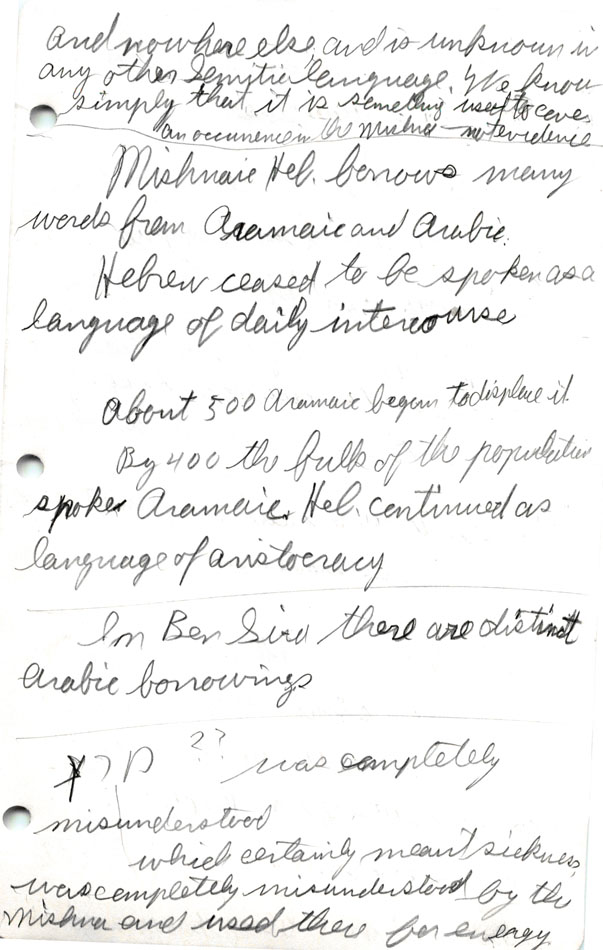 and nowhere else, and is unknown in
any other Semitic language. We know
simply that it is something used to cover
an occurrence in the Mishna – not evidence
Mishnaic Heb. borrows many
words from Aramaic and Arabic.
Hebrew ceased to be spoken as a
language of daily intercourse
About 500 Aramaic began to displace it.
By 400 the bulk of the population
spoke Aramaic. Heb. continued as
language of aristocracy
In Ben Sira there are distinct
Arabic borrowings
?? was completely
misunderstood
which certainly meant sickness,
was completely misunderstood by the
Mishna and used there for energy